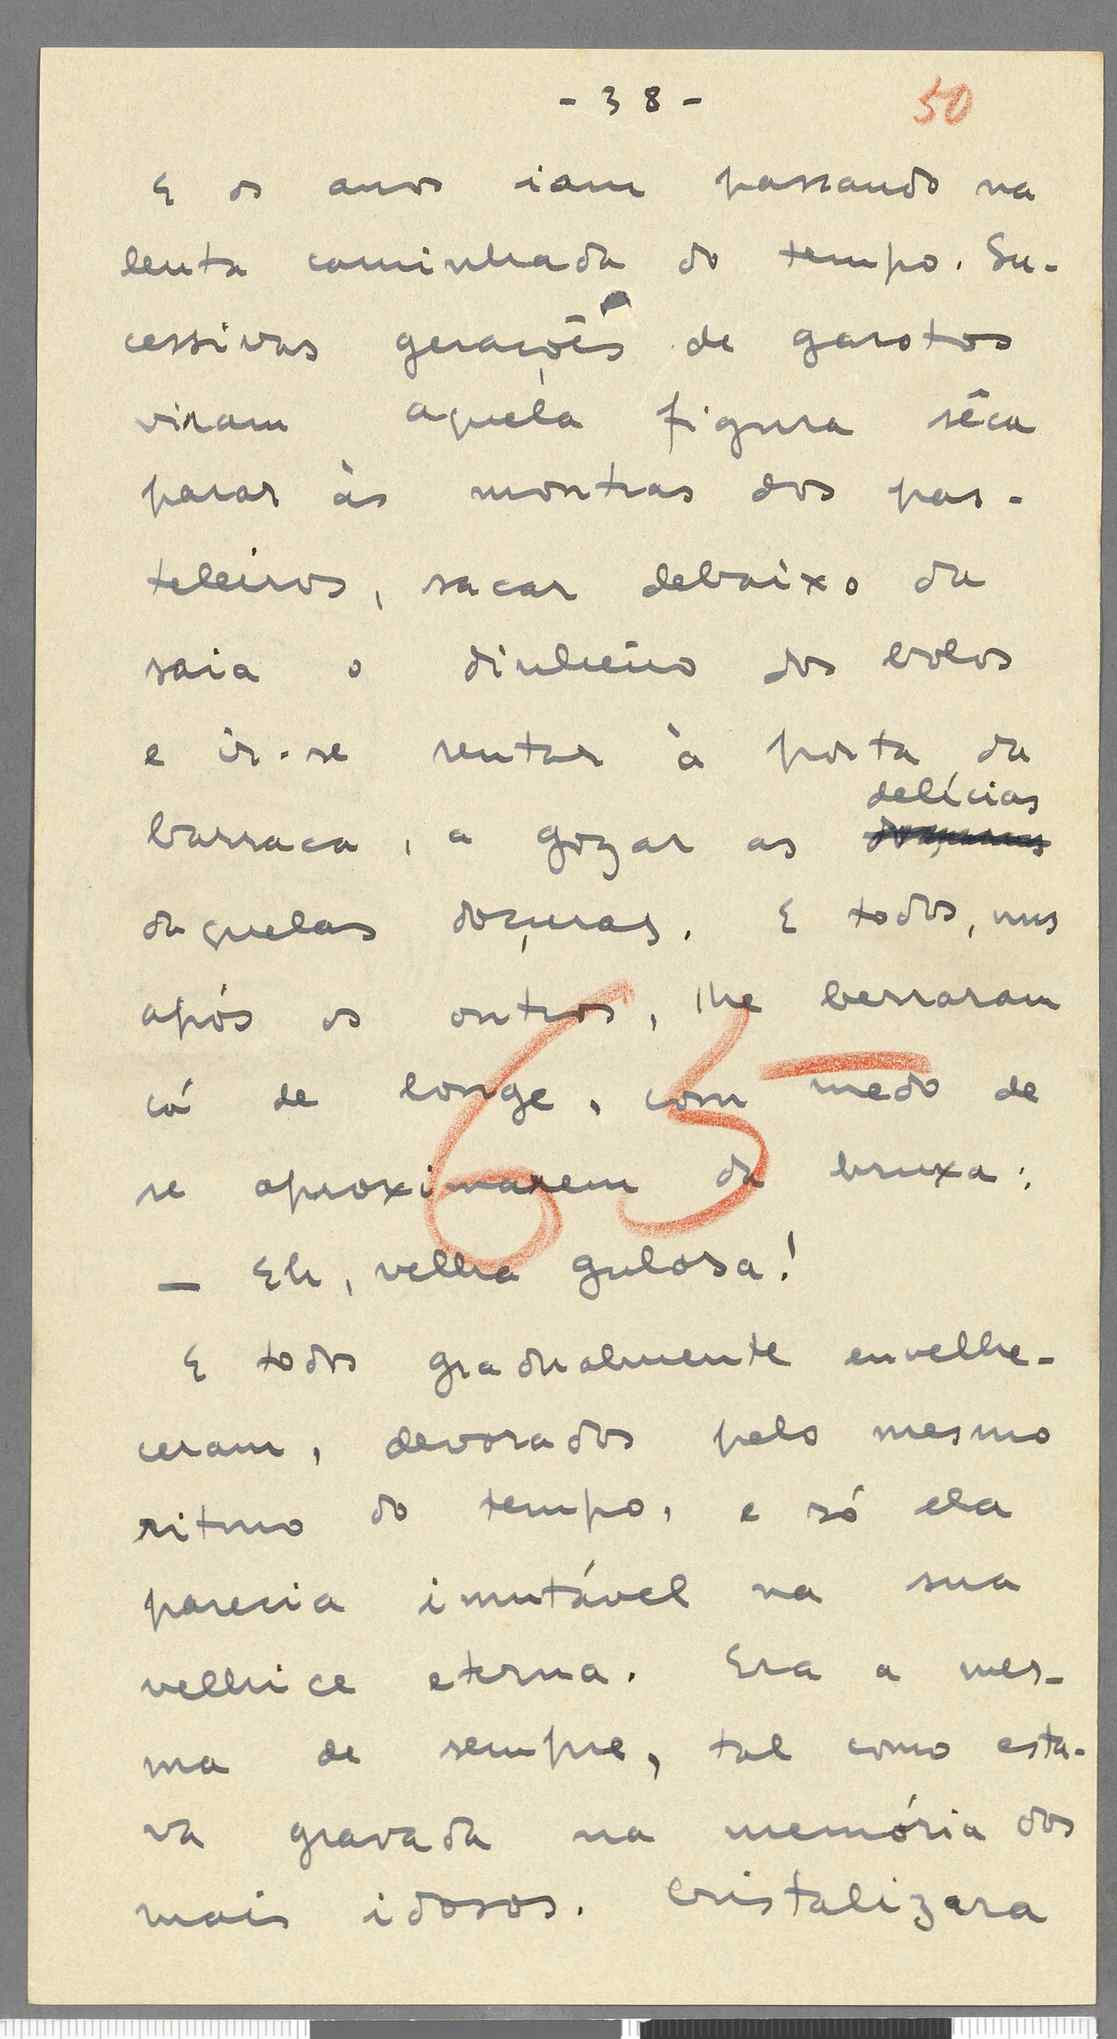 - 38 - 50
E os anos iam passando na
lenta caminhada do tempo. Su-
cessivas gerações de garotos
viram aquela figura sêca
parar às montras dos pas-
teleiros, sacar debaixo da
saia o dinheiro dos bolos
e ir-se sentar à porta da
delícias
barraca, a gozar as doçuras
daquelas doçuras. E todos, uns
após os outros, lhe berraram
65
cá de longe, com medo de
se aproximarem da bruxa:
— Eh, velha gulosa!
E todos gradualmente envelhe-
ceram, devorados pelo mesmo
ritmo do tempo, e só ela
parecia imutável na sua
velhice eterna. Era a mes-
ma de sempre, tal como esta-
va gravada na memória dos
mais idosos. Cristalizara